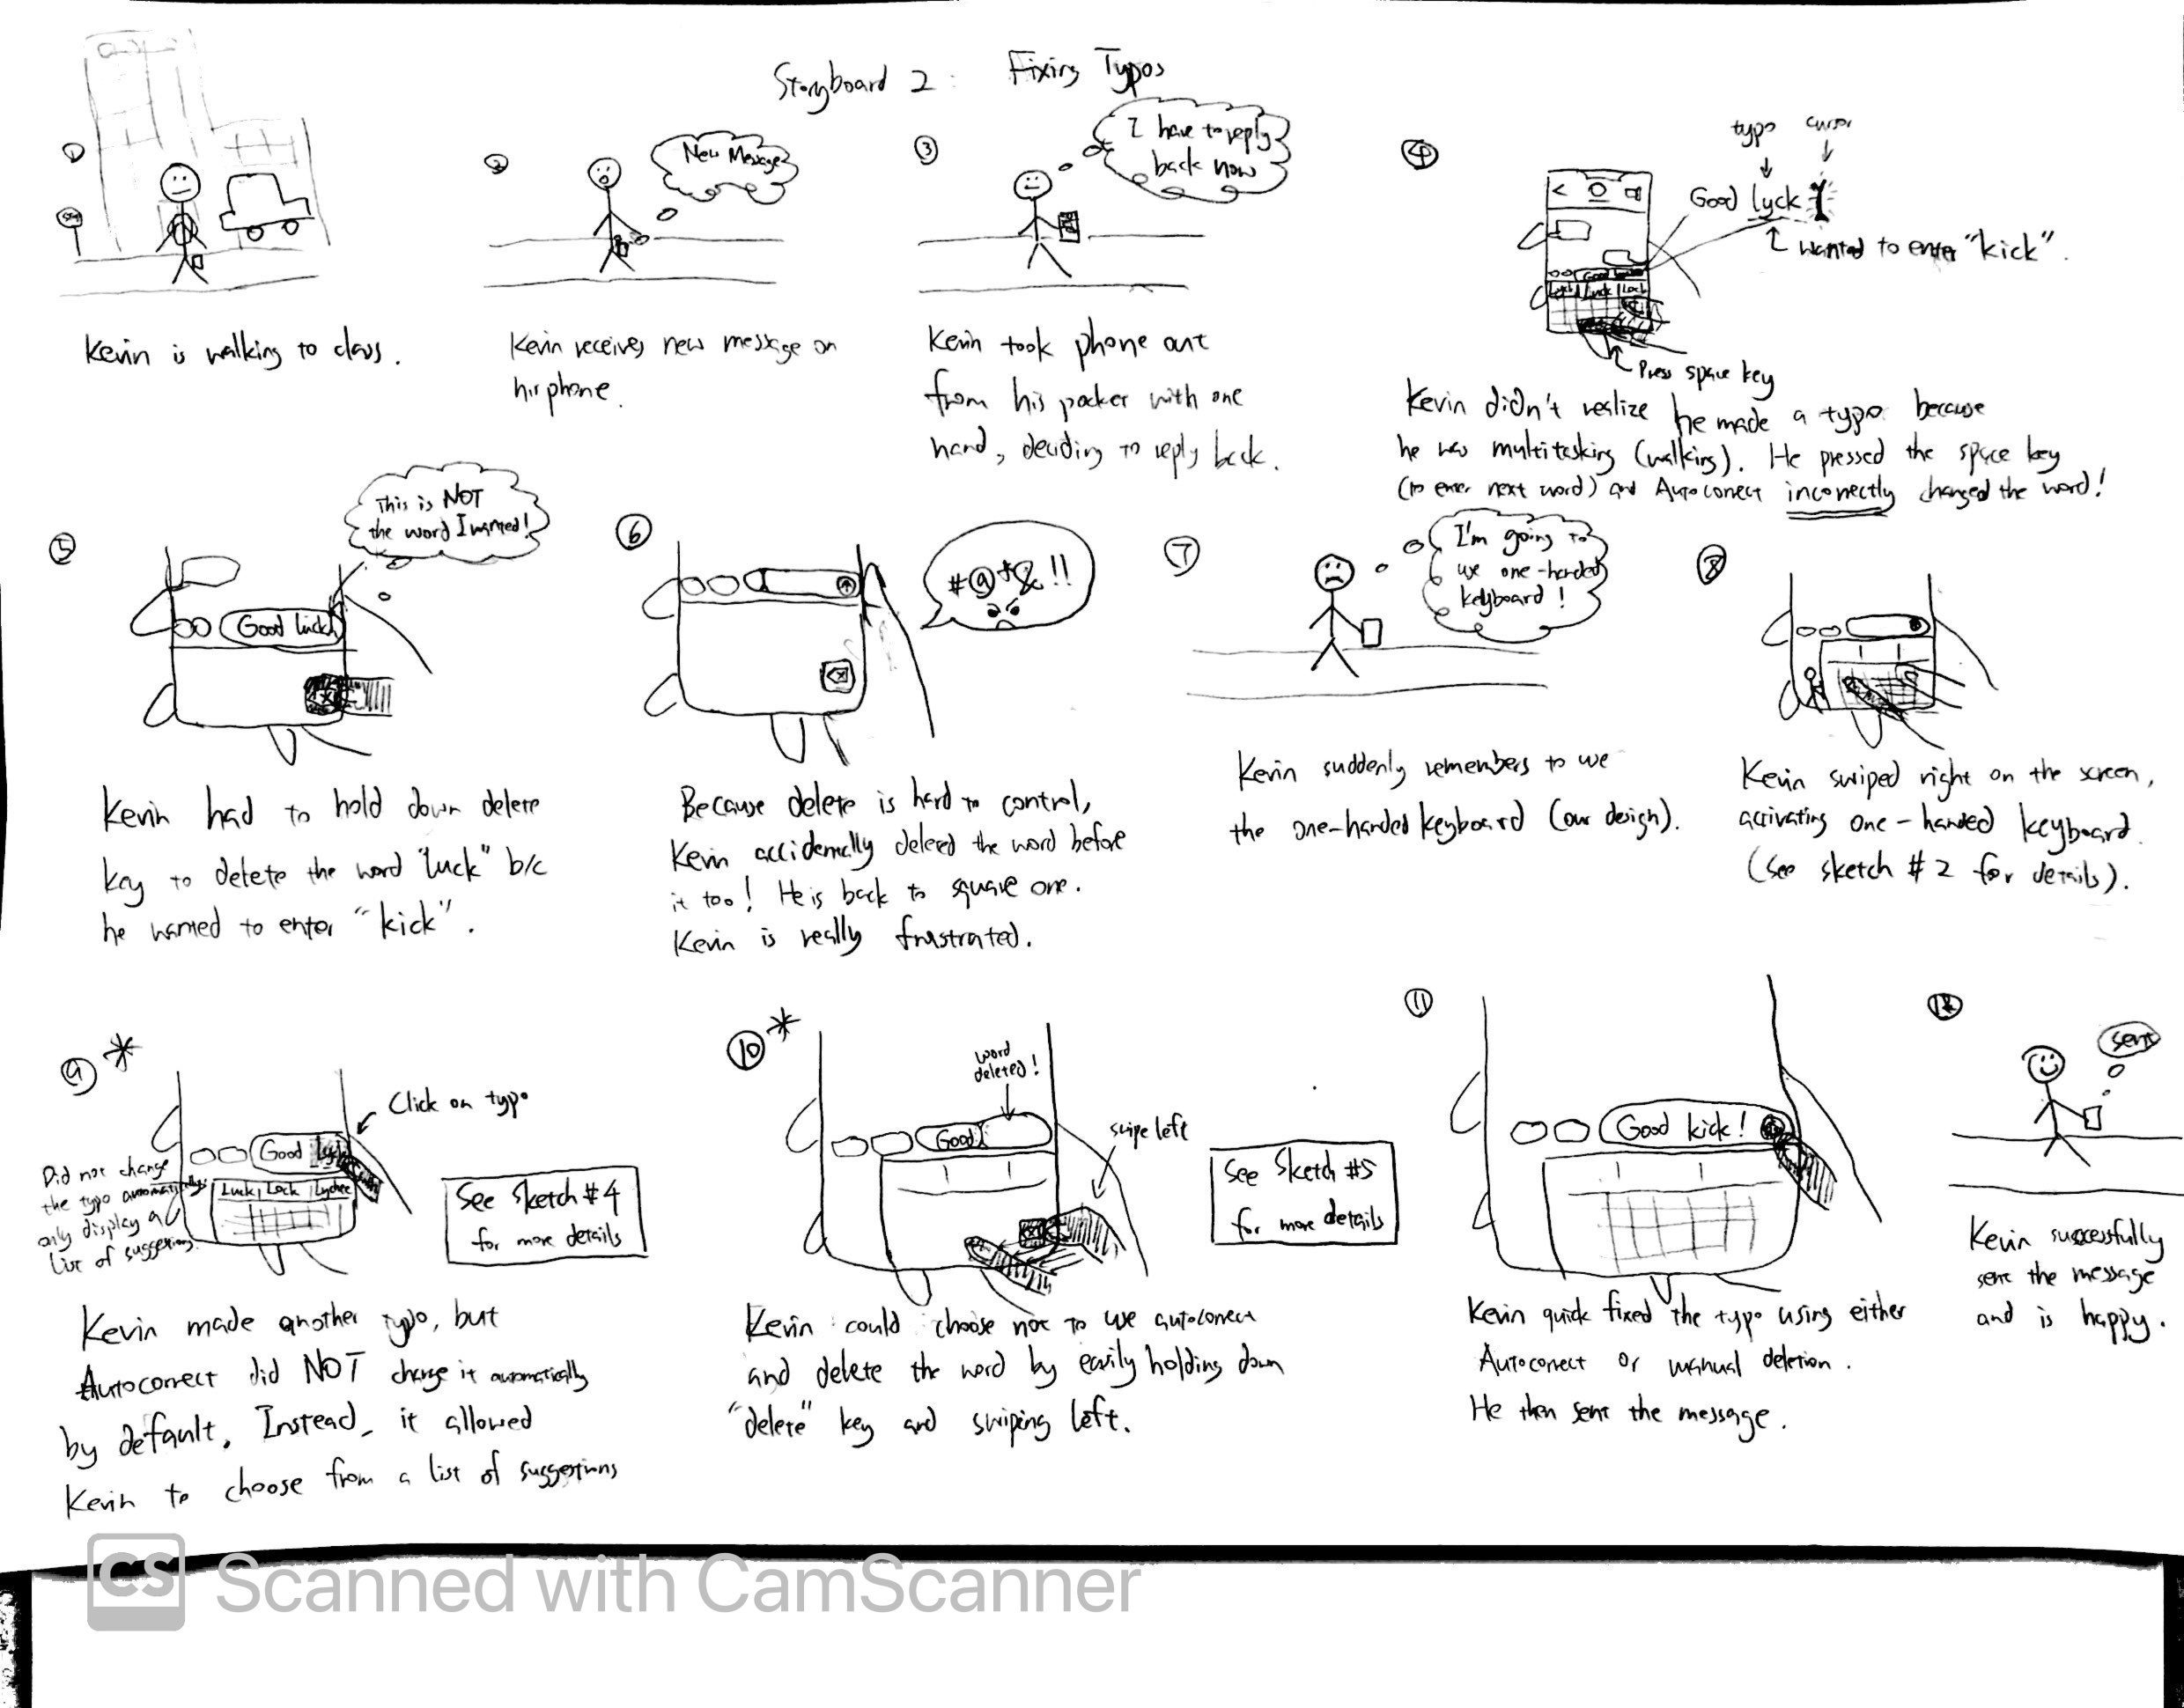 Storyboard 2 : Fixing Typos
①
Kevin is walking to class.
②
New Message
Kevin receives new message on
his phone.
③
I have to reply
back now
Kevin took phone out
from his pocket with one
hand, deciding to reply back.
④
typo cursor
Good lyck
wanted to enter "kick".
Luck Lock
Press space key
Kevin didn't realize he made a typo because
he was multitasking (walking). He pressed the space key
(to enter next word) and Autocorrect incorrectly changed the word!
⑤
This is NOT
the word I wanted!
Good luck
Kevin had to hold down delete
key to delete the word "luck" b/c
he wanted to enter "kick".
⑥
#@*&!!
Because delete is hard to control,
Kevin accidentally deleted the word before
it too! He is back to square one.
Kevin is really frustrated.
⑦
I'm going to
use one-handed
keyboard!
Kevin suddenly remembers to use
the one-handed keyboard (our design).
⑧
Kevin swiped right on the screen,
activating one-handed keyboard.
(See sketch #2 for details).
⑨ *
Click on typo
Good lyck
Luck Lock Lychee
Did not change
the typo automatically,
only display a
list of suggestions.
See Sketch #4
for more details
Kevin made another typo, but
Autocorrect did NOT change it automatically
by default. Instead, it allowed
Kevin to choose from a list of suggestions
⑩ *
word
deleted!
Good
swipe left
See Sketch #5
for more details
Kevin could choose not to use autocorrect
and delete the word by easily holding down
"delete" key and swiping left.
⑪
Good kick!
Kevin quick fixed the typo using either
Autocorrect or manual deletion.
He then sent the message.
⑫
sent
Kevin successfully
sent the message
and is happy.
CS Scanned with CamScanner